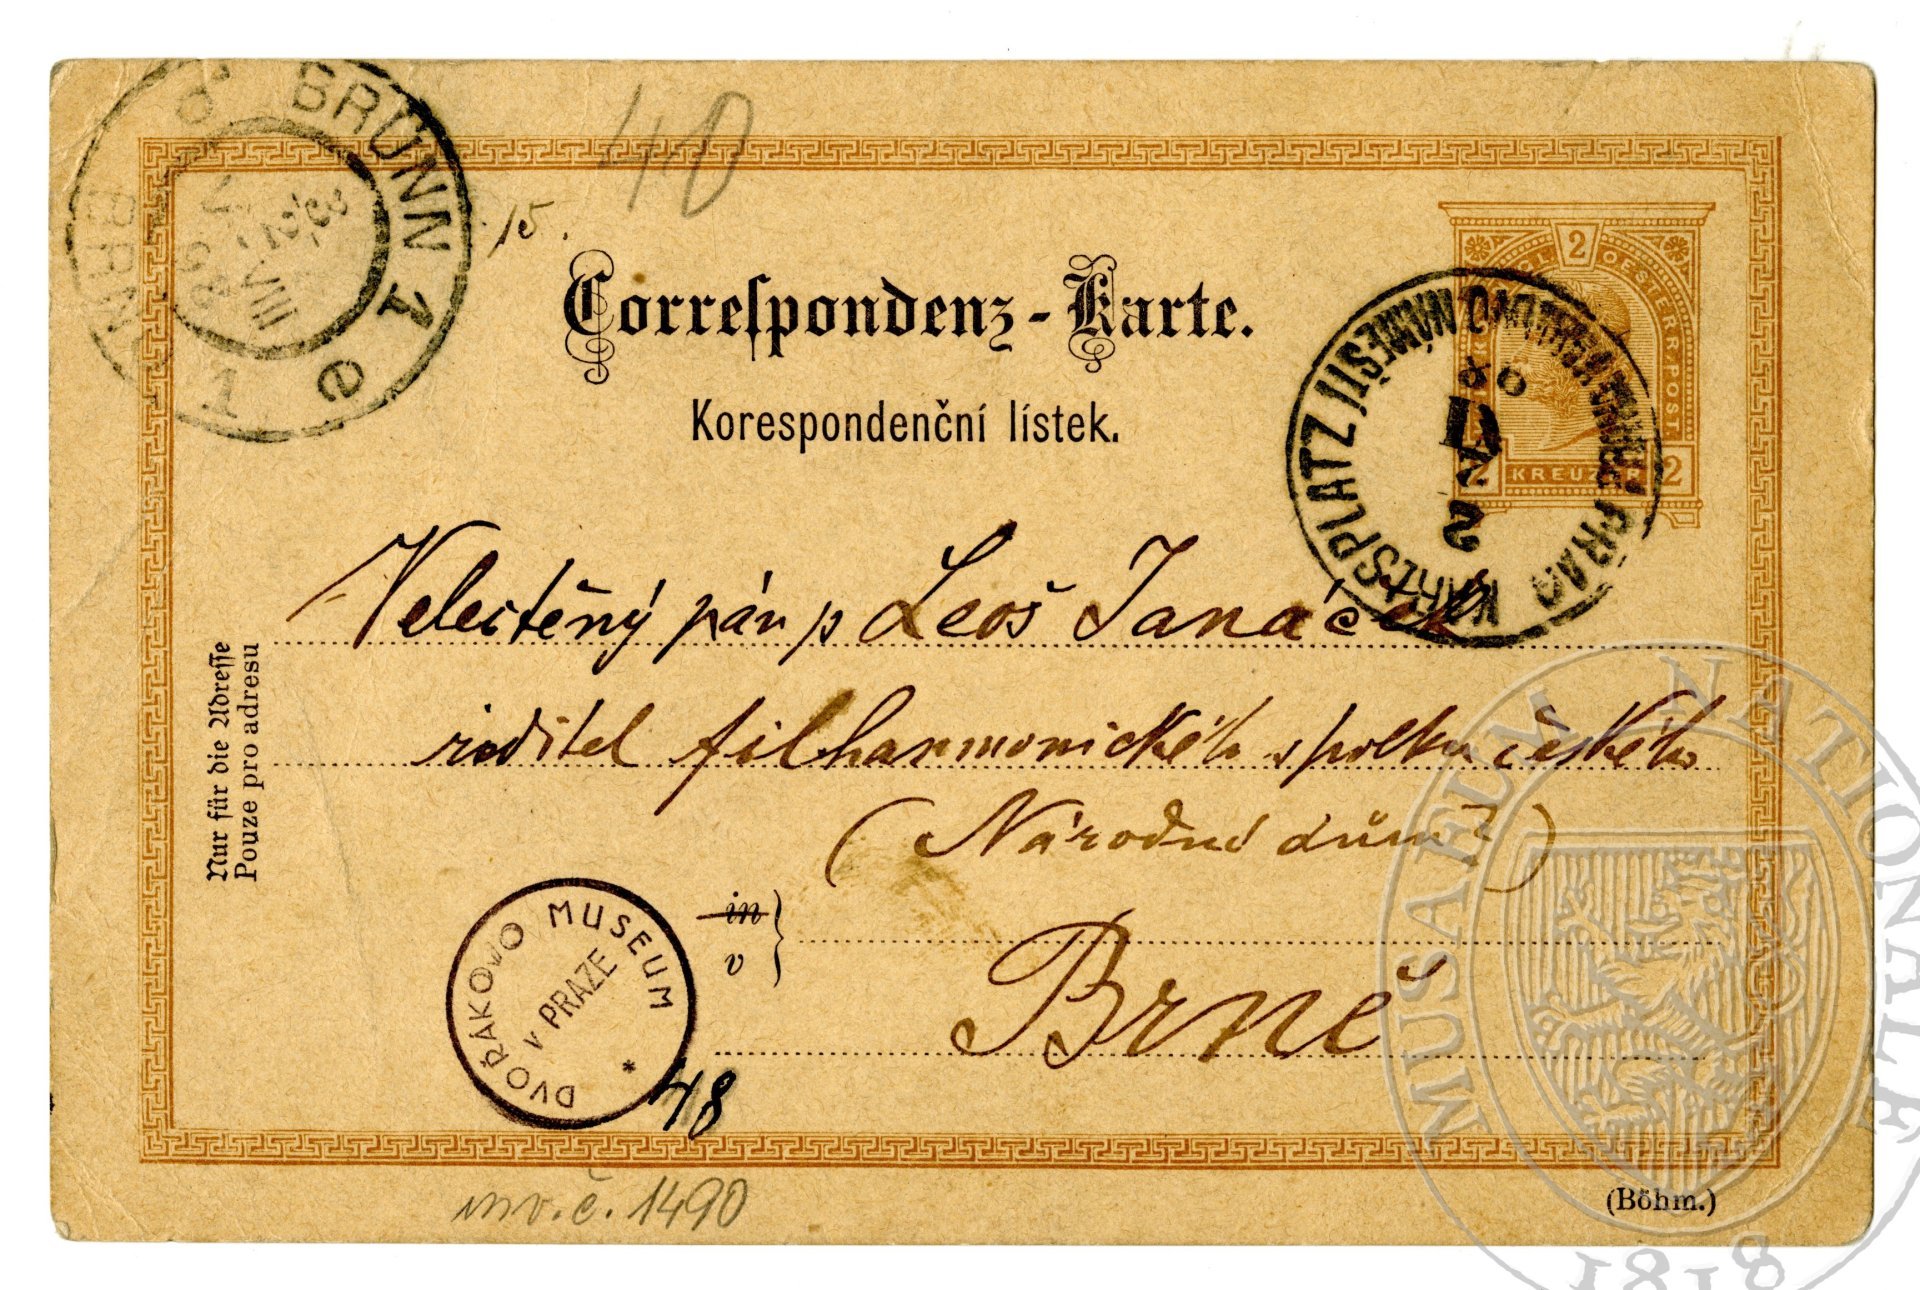 BRÜNN 1 e
BRNO 1
VIII
40
15.
Correſpondenz-Karte.
Korespondenční lístek.
2
OESTERR. POST
2 KREUZER 2
KARLSPLATZ
PRAG
2
Velectěný pán p Leoš Janáček
ředitel filharmonického spolku českého
(Národní dům?)
in
v
Brně
Nur für die Adreſſe
Pouze pro adresu
DVOŘÁKOVO MUSEUM
V PRAZE
*
48
inv. č. 1490
(Böhm.)
MUSAEUM NATIONALE
1818